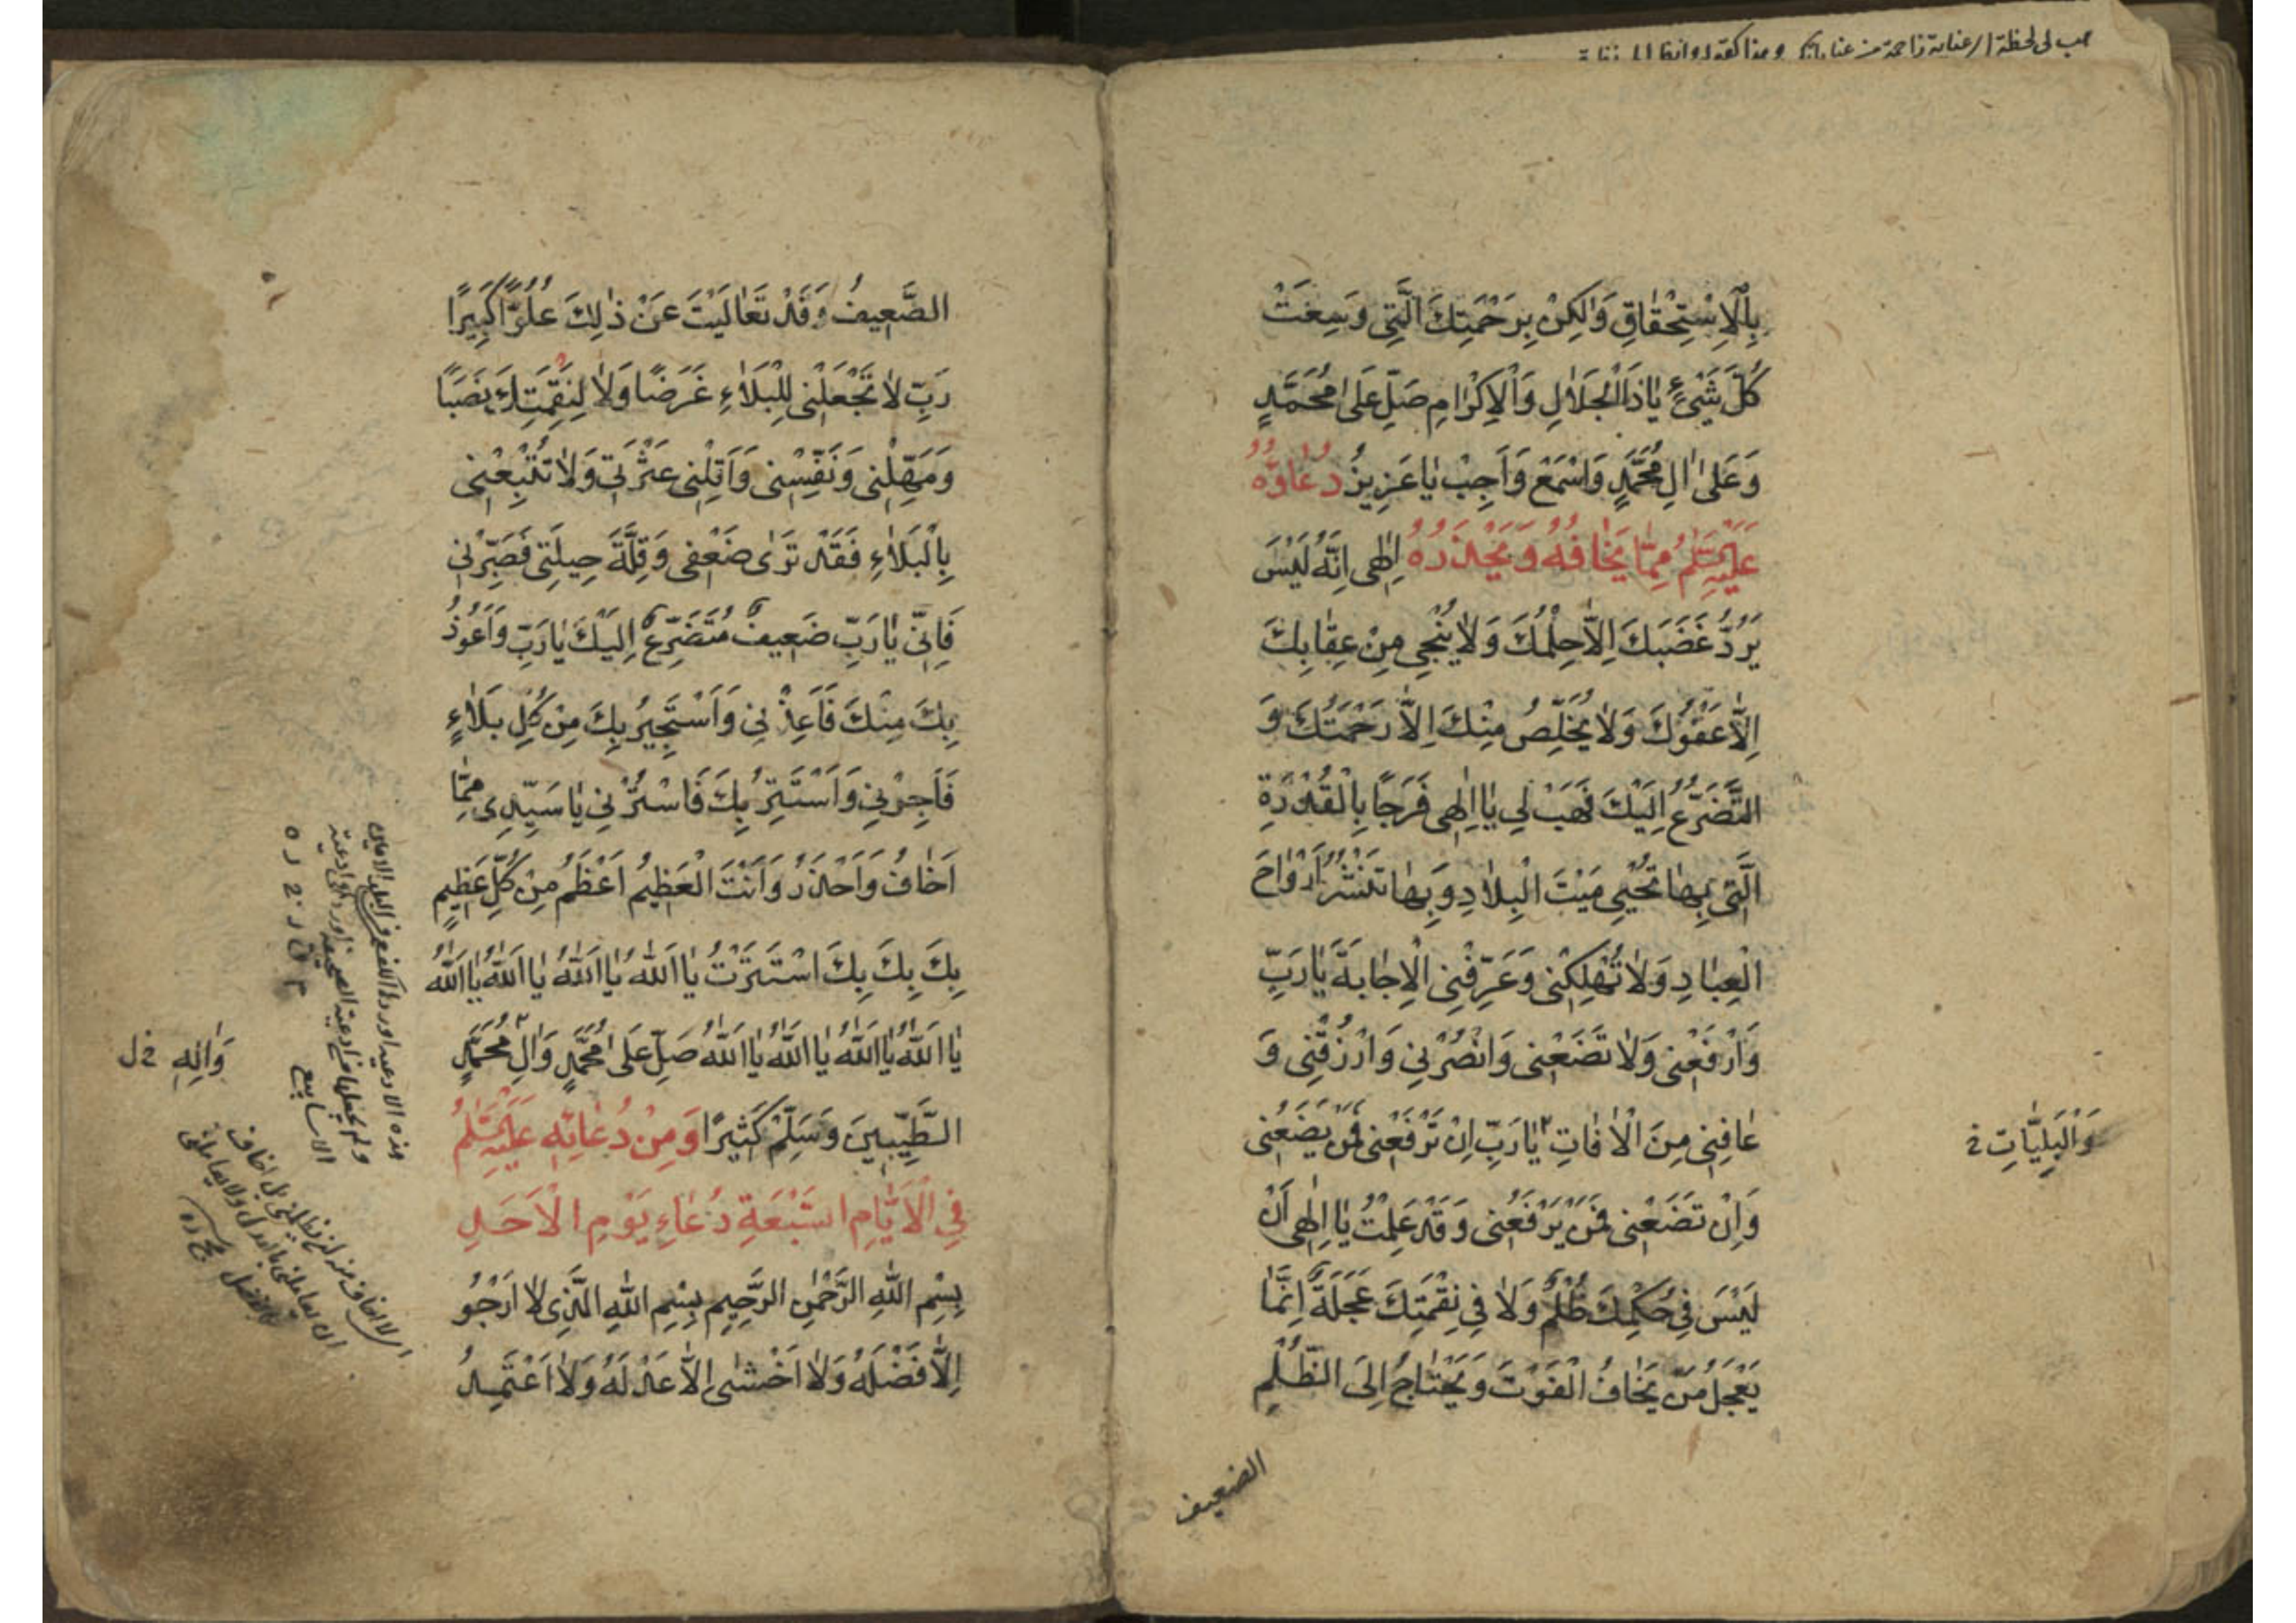 بِالْاِسْتِحْقٰاقِ وَلٰكِنْ بِرَحْمَتِكَ الَّتِي وَسِعَتْ
كُلَّ شَيْءٍ يٰا ذَا الْجَلٰالِ وَالْاِكْرٰامِ صَلِّ عَلىٰ مُحَمَّدٍ
وَعَلىٰ اٰلِ مُحَمَّدٍ وَاسْمَعْ وَاَجِبْ يٰا عَزِيزُ دُعٰاؤُهُ
عَلَيْهِ السَّلٰمُ مِمّٰا يَخٰافُهُ وَيَحْذَرُهُ اِلٰهِى اِنَّهُ لَيْسَ
يَرُدُّ غَضَبَكَ اِلاّٰ حِلْمُكَ وَلٰا يُنْجِى مِنْ عِقٰابِكَ
اِلاّٰ عَفْوُكَ وَلٰا يُخَلِّصُ مِنْكَ اِلاّٰ رَحْمَتُكَ وَ
التَّضَرُّعُ اِلَيْكَ فَهَبْ لِي يٰا اِلٰهِى فَرَجًا بِالْقُدْرَةِ
الَّتِى بِهٰا تُحْيِى مَيْتَ الْبِلٰادِ وَبِهٰا تَنْشُرُ اَرْوٰاحَ
الْعِبٰادِ وَلٰا تُهْلِكْنِى وَعَرِّفْنِى الْاِجٰابَةَ يٰا رَبِّ
وَارْفَعْنِى وَلٰا تَضَعْنِى وَانْصُرْنِي وَارْزُقْنِى وَ
عٰافِنِى مِنَ الْاٰفٰاتِ يٰا رَبِّ اِنْ تَرْفَعْنِى فَمَنْ يَضَعُنِى
وَالْبَلِيّٰاتِ خ
وَاِنْ تَضَعْنِى فَمَنْ يَرْفَعُنِى وَقَدْ عَلِمْتُ يٰا اِلٰهِى اَنْ
لَيْسَ فِى حُكْمِكَ ظُلْمٌ وَلٰا فِى نِقْمَتِكَ عَجَلَةٌ اِنَّمٰا
يَعْجَلُ مَنْ يَخٰافُ الْفَوْتَ وَيَحْتٰاجُ اِلَى الظُّلْمِ
الضعيف
الضَّعِيفُ وَقَدْ تَعٰالَيْتَ عَنْ ذٰلِكَ عُلُوًّا كَبِيرًا
رَبِّ لٰا تَجْعَلْنِى لِلْبَلٰاءِ غَرَضًا وَلٰا لِنِقْمَتِكَ نَصَبًا
وَمَهِّلْنِى وَنَفِّسْنِى وَاَقِلْنِى عَثْرَتِى وَلٰا تُتْبِعْنِى
بِالْبَلٰاءِ فَقَدْ تَرٰى ضَعْفِى وَقِلَّةَ حِيلَتِى فَصَبِّرْنِى
فَاِنِّى يٰا رَبِّ ضَعِيفٌ مُتَضَرِّعٌ اِلَيْكَ يٰا رَبِّ وَاَعُوذُ
بِكَ مِنْكَ فَاَعِذْنِي وَاَسْتَجِيرُ بِكَ مِنْ كُلِّ بَلٰاءٍ
فَاَجِرْنِي وَاَسْتَتِرُ بِكَ فَاسْتُرْنِي يٰا سَيِّدِى مِمّٰا
اَخٰافُ وَاَحْذَرُ وَاَنْتَ الْعَظِيمُ اَعْظَمُ مِنْ كُلِّ عَظِيمٍ
بِكَ بِكَ بِكَ اسْتَتَرْتُ يٰا اَللّٰهُ يٰا اَللّٰهُ يٰا اَللّٰهُ يٰا اَللّٰهُ
يٰا اَللّٰهُ يٰا اَللّٰهُ يٰا اَللّٰهُ يٰا اَللّٰهُ صَلِّ عَلىٰ مُحَمَّدٍ وَاٰلِ مُحَمَّدٍ
وَاٰلِهِ خ ل
الطَّيِّبِينَ وَسَلِّمْ كَثِيرًا وَمِنْ دُعٰائِهِ عَلَيْهِ السَّلٰمُ
فِى الْاَيّٰامِ السَّبْعَةِ دُعٰاءِ يَوْمِ الْاَحَدِ
بِسْمِ اللّٰهِ الرَّحْمٰنِ الرَّحِيمِ بِسْمِ اللّٰهِ الَّذِى لٰا اَرْجُو
اِلاّٰ فَضْلَهُ وَلٰا اَخْشٰى اِلاّٰ عَدْلَهُ وَلٰا اَعْتَمِدُ
هذه الادعية اوردها الكفعمي في البلد الامين